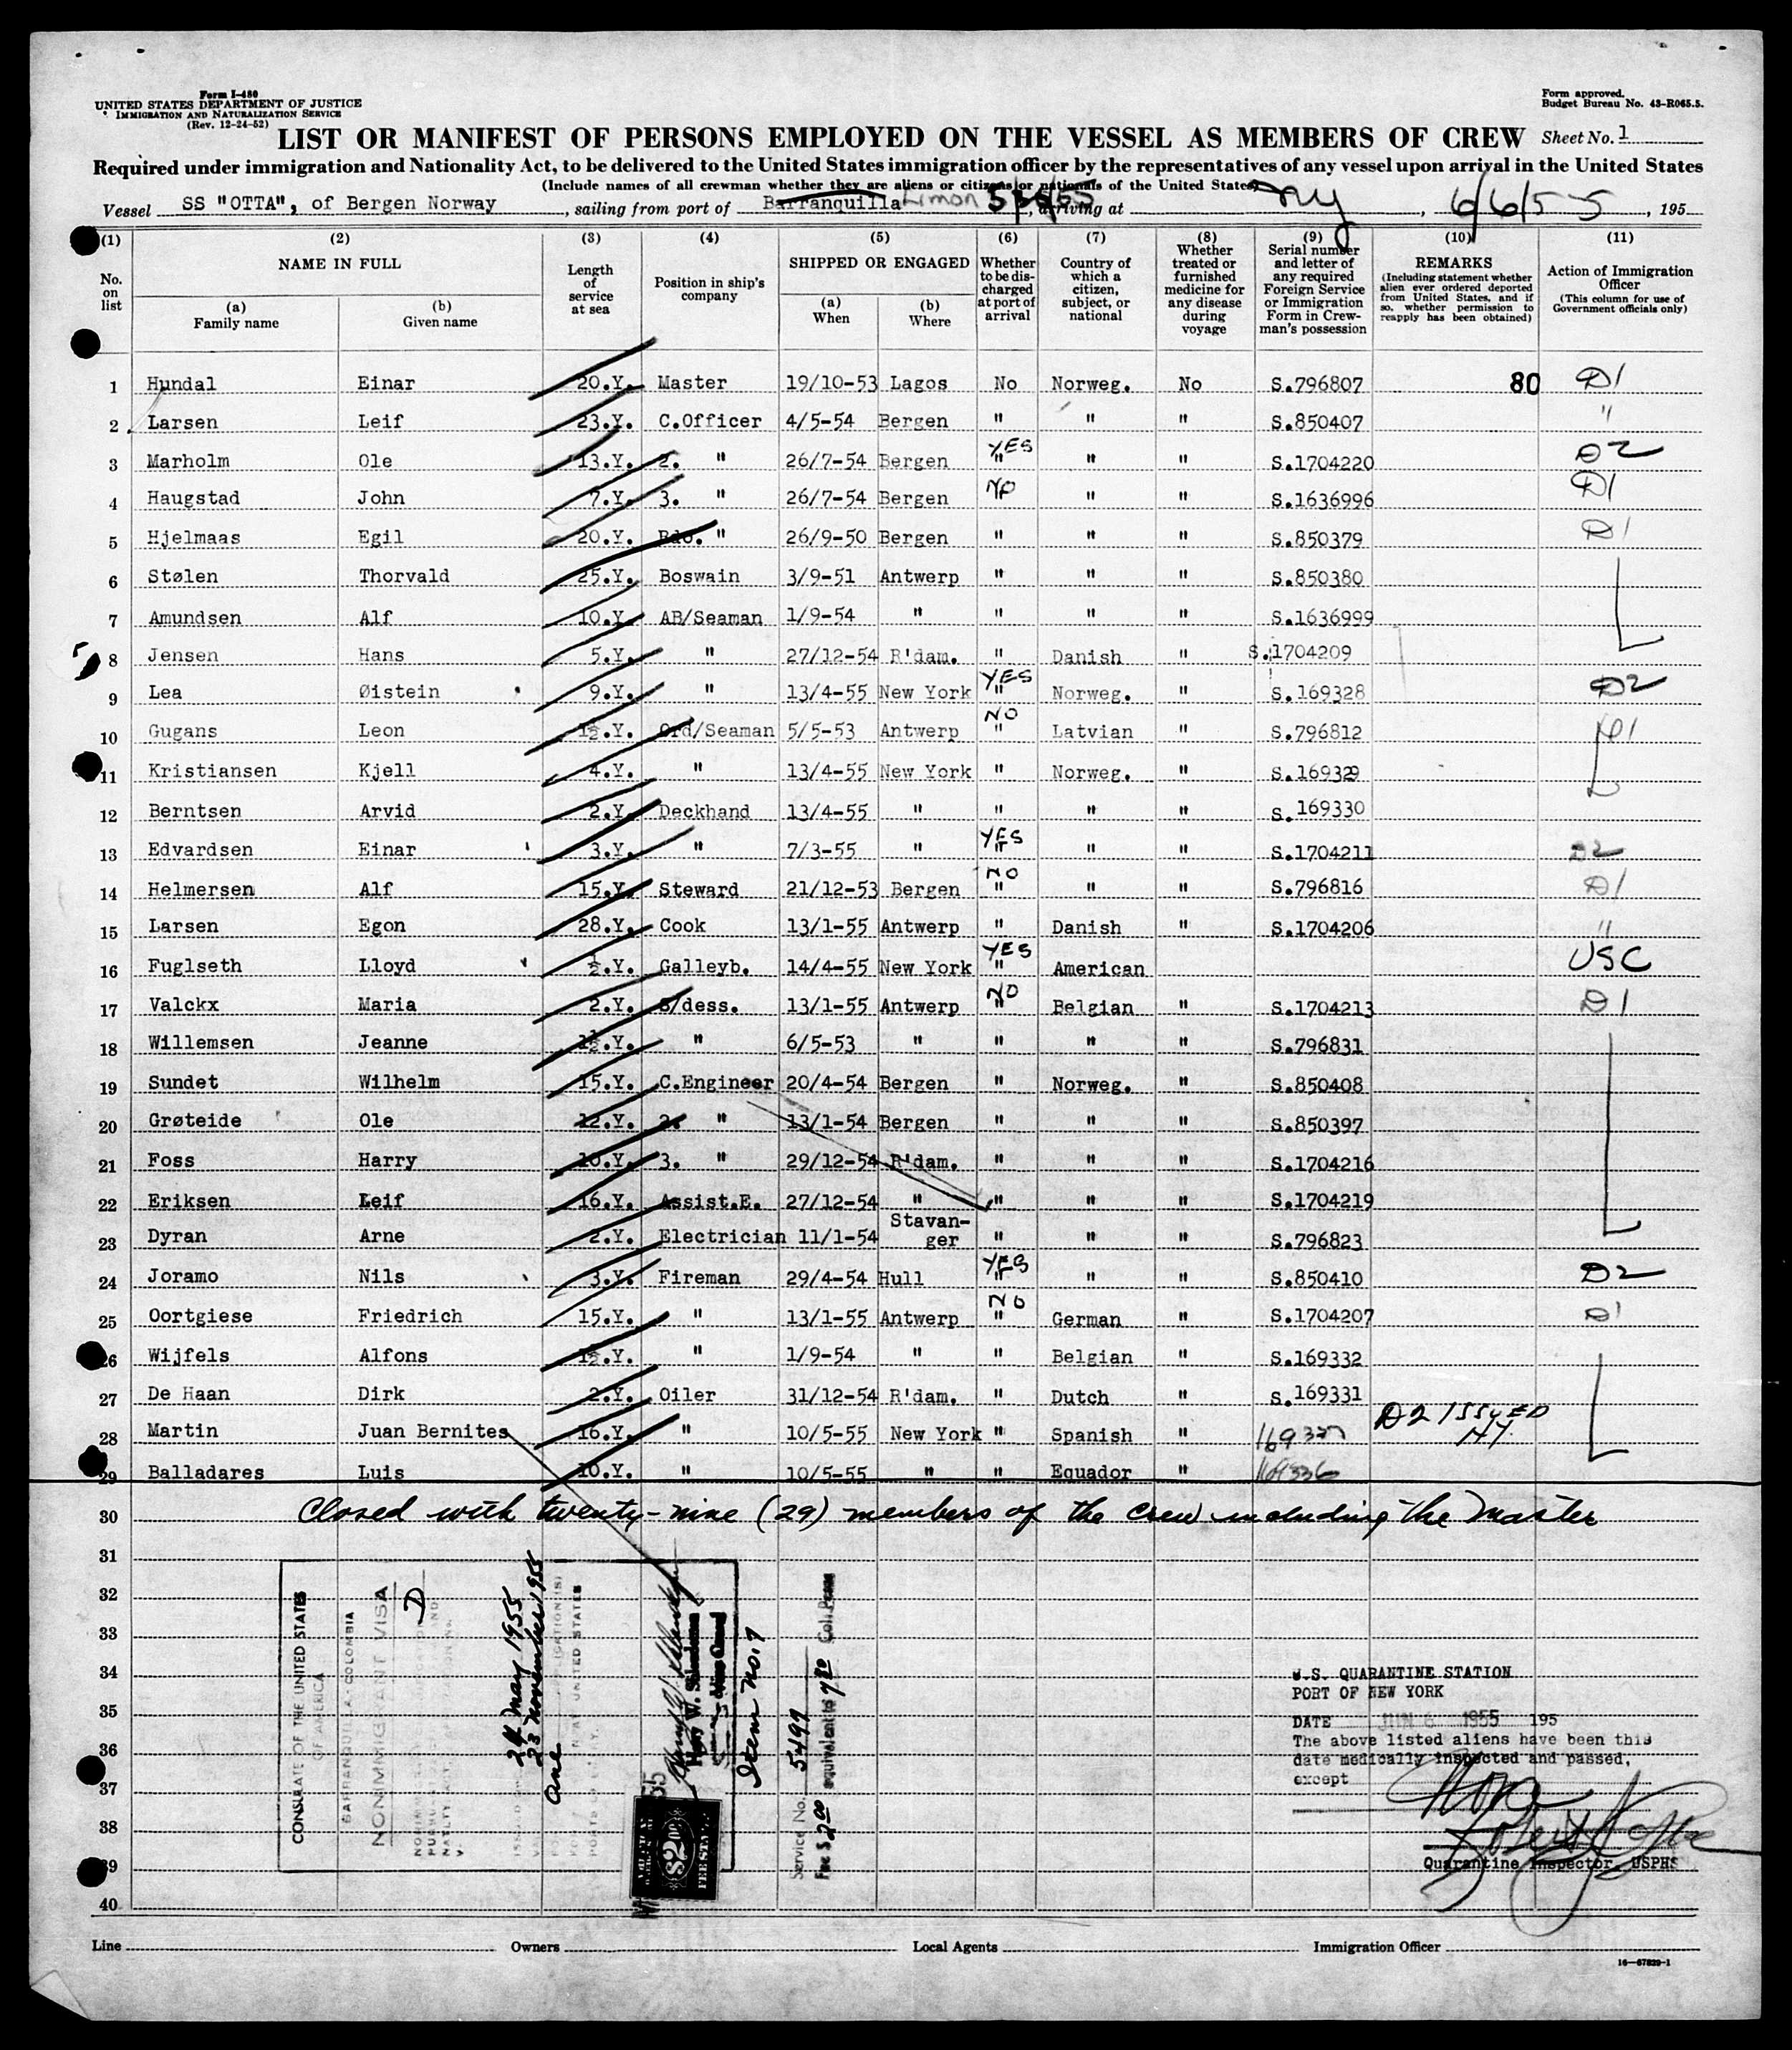 Form I-480
UNITED STATES DEPARTMENT OF JUSTICE
IMMIGRATION AND NATURALIZATION SERVICE
(Rev. 12-24-52)
Form approved.
Budget Bureau No. 43-R065.5.
LIST OR MANIFEST OF PERSONS EMPLOYED ON THE VESSEL AS MEMBERS OF CREW
Sheet No. 1
Required under immigration and Nationality Act, to be delivered to the United States immigration officer by the representatives of any vessel upon arrival in the United States
(Include names of all crewman whether they are aliens or citizens or nationals of the United States)
Vessel SS "OTTA", of Bergen Norway, sailing from port of Barranquilla Limon, arriving at NY, 6/6/55, 195
(1) No. on list
(2) NAME IN FULL
(a) Family name
(b) Given name
(3) Length of service at sea
(4) Position in ship's company
(5) SHIPPED OR ENGAGED
(a) When
(b) Where
(6) Whether to be discharged at port of arrival
(7) Country of which a citizen, subject, or national
(8) Whether treated or furnished medicine for any disease during voyage
(9) Serial number and letter of any required Foreign Service or Immigration Form in Crewman's possession
(10) REMARKS
(Including statement whether alien ever ordered deported from United States, and if so, whether permission to reapply has been obtained)
(11) Action of Immigration Officer
(This column for use of Government officials only)
1 Hundal Einar 20.Y. Master 19/10-53 Lagos No Norweg. No S.796807 80 D1
2 Larsen Leif 23.Y. C.Officer 4/5-54 Bergen " " " S.850407 "
3 Marholm Ole 13.Y. 2. " 26/7-54 Bergen YES " " " S.1704220 D2
4 Haugstad John 7.Y. 3. " 26/7-54 Bergen NO " " S.1636996 D1
5 Hjelmaas Egil 20.Y. Rdo. " 26/9-50 Bergen " " " S.850379 D1
6 Stølen Thorvald 25.Y. Boswain 3/9-51 Antwerp " " " S.850380
7 Amundsen Alf 10.Y. AB/Seaman 1/9-54 " " " " S.1636999
8 Jensen Hans 5.Y. " 27/12-54 R'dam. " Danish " S.1704209
9 Lea Øistein 9.Y. " 13/4-55 New York YES " Norweg. " S.169328 D2
10 Gugans Leon 1½.Y. Ord/Seaman 5/5-53 Antwerp NO " Latvian " S.796812 D1
11 Kristiansen Kjell 4.Y. " 13/4-55 New York " Norweg. " S.169329
12 Berntsen Arvid 2.Y. Deckhand 13/4-55 " " " " S.169330
13 Edvardsen Einar 3.Y. " 7/3-55 " YES " " " S.1704211 D2
14 Helmersen Alf 15.Y. Steward 21/12-53 Bergen NO " " " S.796816 D1
15 Larsen Egon 28.Y. Cook 13/1-55 Antwerp " Danish " S.1704206 "
16 Fuglseth Lloyd ½.Y. Galleyb. 14/4-55 New York YES " American USC
17 Valckx Maria 2.Y. S/dess. 13/1-55 Antwerp NO " Belgian " S.1704213 D1
18 Willemsen Jeanne 1½.Y. " 6/5-53 " " " " S.796831
19 Sundet Wilhelm 15.Y. C.Engineer 20/4-54 Bergen " Norweg. " S.850408
20 Grøteide Ole 12.Y. 2. " 13/1-54 Bergen " " " S.850397
21 Foss Harry 10.Y. 3. " 29/12-54 R'dam. " " " S.1704216
22 Eriksen Leif 16.Y. Assist.E. 27/12-54 " " " " S.1704219
23 Dyran Arne 2.Y. Electrician 11/1-54 Stavanger " " " S.796823
24 Joramo Nils 3.Y. Fireman 29/4-54 Hull YES " " " S.850410 D2
25 Oortgiese Friedrich 15.Y. " 13/1-55 Antwerp NO " German " S.1704207 D1
26 Wijfels Alfons 1½.Y. " 1/9-54 " " Belgian " S.169332
27 De Haan Dirk 2.Y. Oiler 31/12-54 R'dam. " Dutch " S.169331
28 Martin Juan Bernites 16.Y. " 10/5-55 New York " Spanish " D2 ISSUED NY.
29 Balladares Luis 10.Y. " 10/5-55 " " Equador " 169336
30 Closed with twenty-nine (29) members of the crew including the Master
31
32
33
34
35
36
37
38
39
40
CONSULATE OF THE UNITED STATES
OF AMERICA
BARRANQUILLA, COLOMBIA
NONIMMIGRANT VISA
D
24 May 1955
23 November 1955
One
Item No. 7
Service No. 5497
Fee $ 2.00 equivalent to
$2.00
U.S. QUARANTINE STATION
PORT OF NEW YORK
DATE JUN 6 1955 195
The above listed aliens have been this
date medically inspected and passed,
except None
Quarantine Inspector, USPHS
Line
Owners
Local Agents
Immigration Officer
16—67829-1